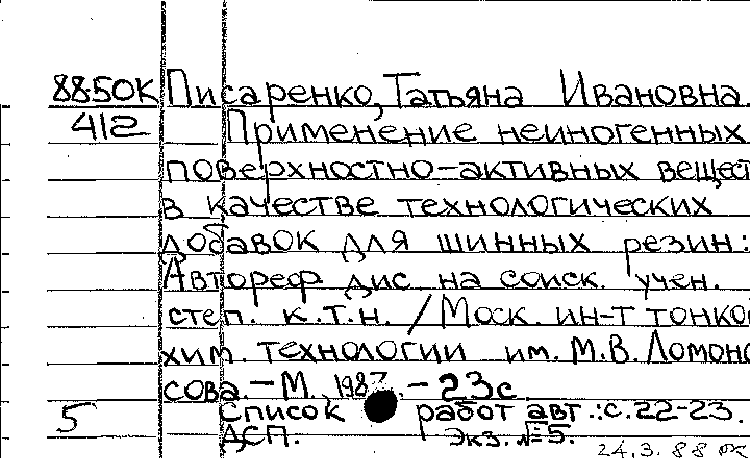 8850К Писаренко, Татьяна Ивановна
412 Применение неиногенных
поверхностно-активных вещест
в качестве технологических
добавок для шинных резин:
Автореф дис на соиск. учен.
степ. к.т.н. / Моск. ин-т тонко
хим. технологии им. М.В. Ломоно
сова. - М., 1987. - 23с
5 Список работ авт.: с. 22-23.
ДСП. Экз. № 5.
24.3.88